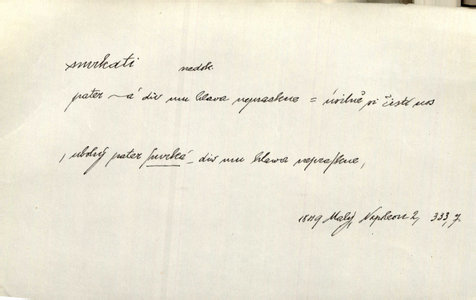 smrkati nedok.
pater ~á div mu hlava nepraskne = úsilně si čistí nos
, ubohý pater smrká - div mu hlawa nepraskne,
1849 Malý, Napoleon 2, 333, j.